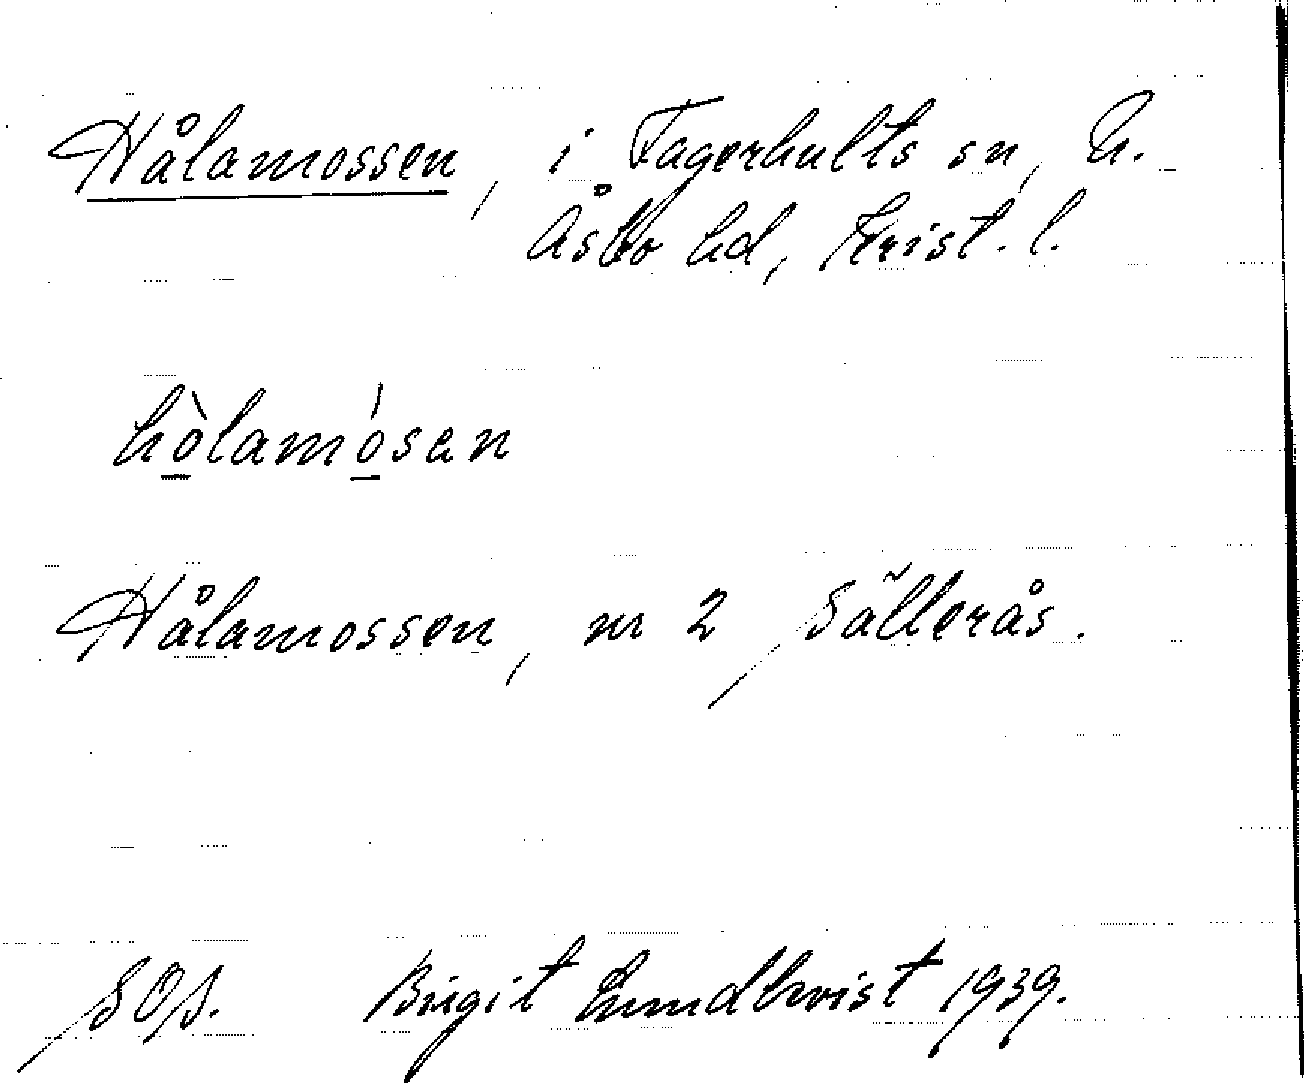 Hålamossen, i Fagerhults sn, N.
Åsbo hd, Krist. l.
hòlamósen
Hålamossen, nr 2 Sällerås.
SOS. Birgit Lundkvist 1939.